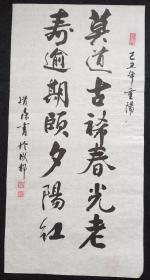 己丑年重陽
莫道古稀春光老
壽逾期頤夕陽紅
書於成都